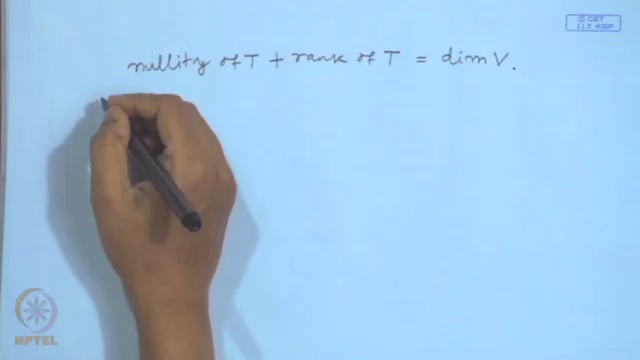 © CET
I.I.T. KGP
nullity of T + rank of T = dim V.
NPTEL